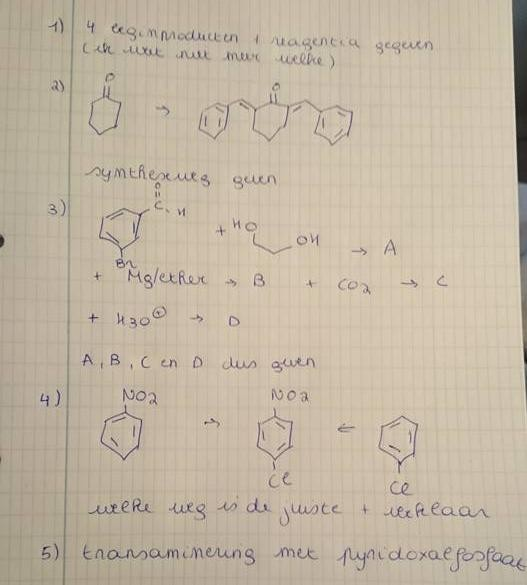 1) 4 beginproducten + reagentia gegeven
(ik weet niet meer welke)
2) O → O
syntheseweg geven
3) O
C. H
+ HO OH → A
Br
+ Mg/ether → B + CO2 → C
+ H3O⊕ → D
A, B, C en D dus geven
4) NO2 NO2
→ ←
Cl Cl
welke weg is de juiste + verklaar
5) transaminering met pyridoxaalfosfaat